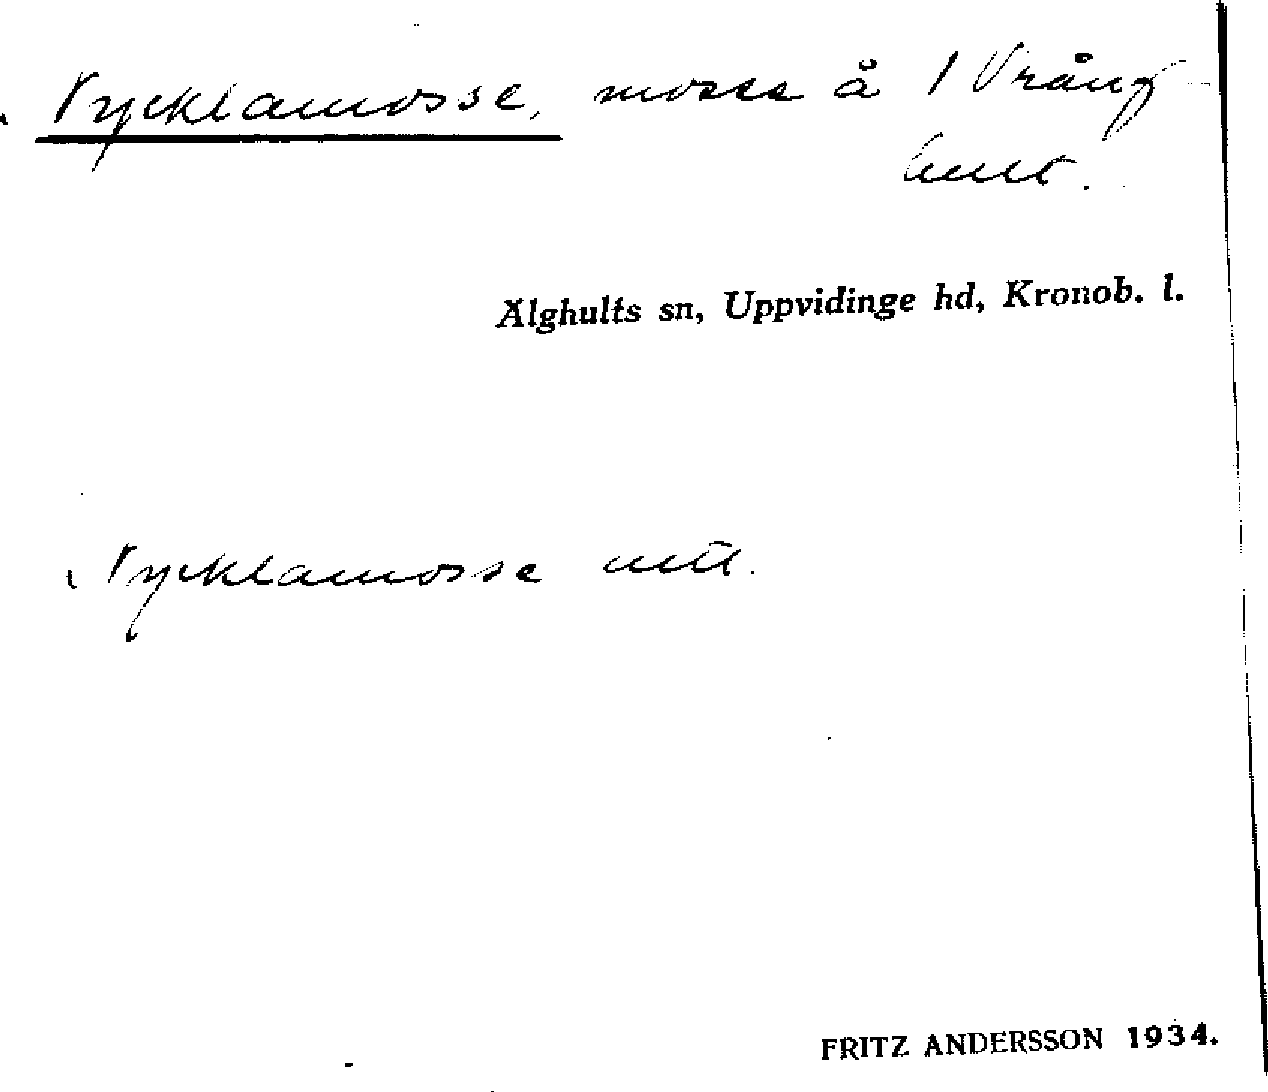 Nycklamosse, mosse å 1 Vrång-
hult.
Älghults sn, Uppvidinge hd, Kronob. l.
Nycklamosse
FRITZ ANDERSSON 1934.